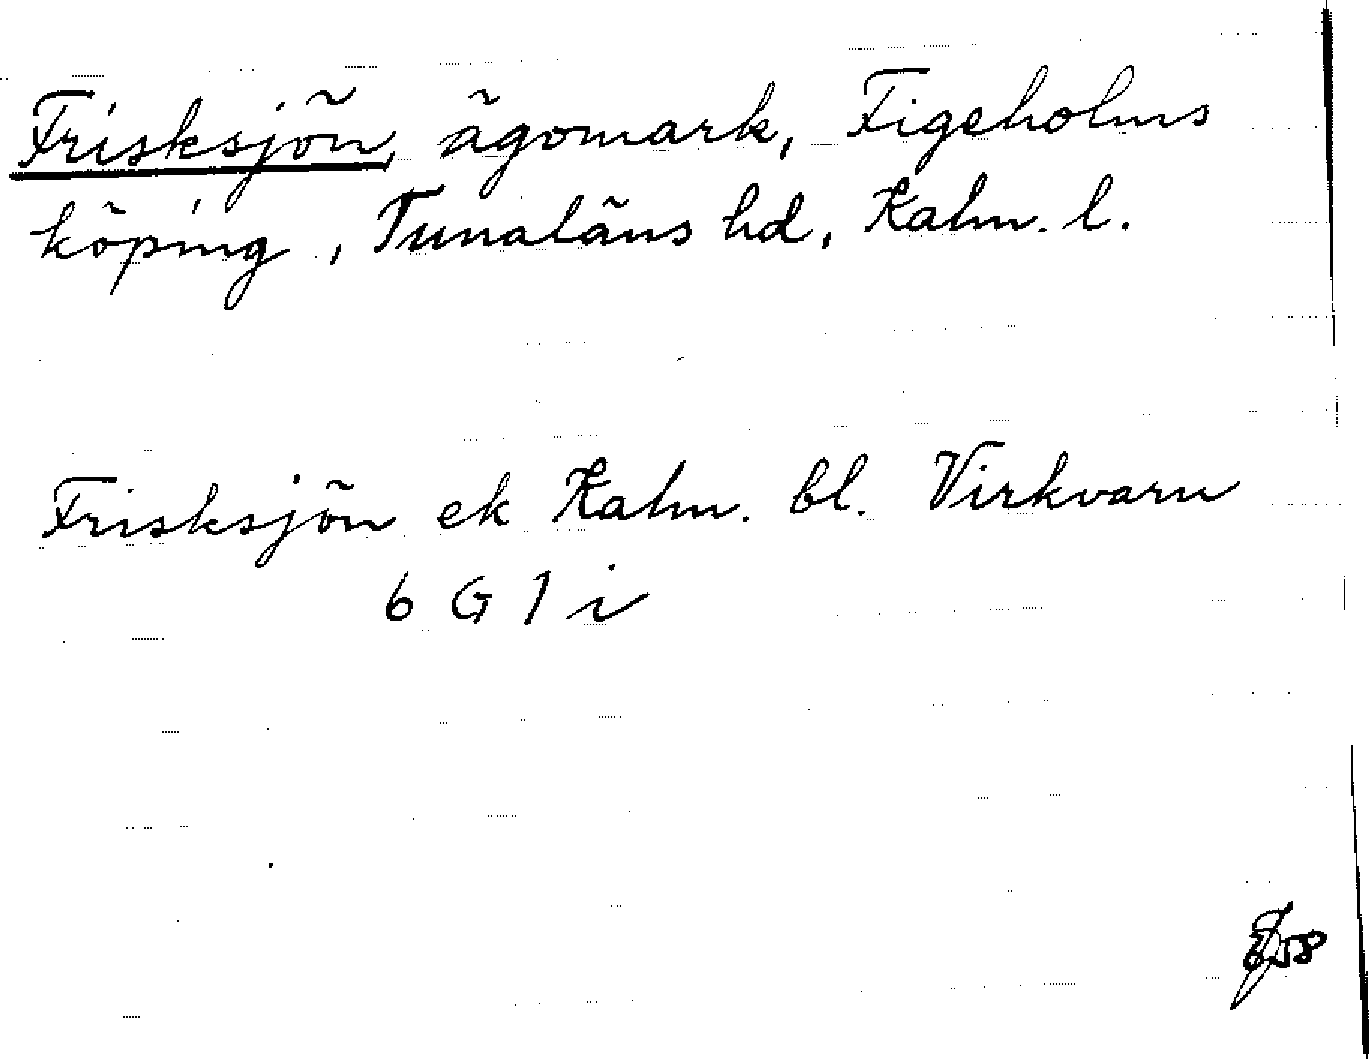 Frisksjön, ägomark, Figeholms
köping, Tunaläns hd, Kalm. l.
Frisksjön ek Kalm. bl. Virkvarn
6 G 1 i
58